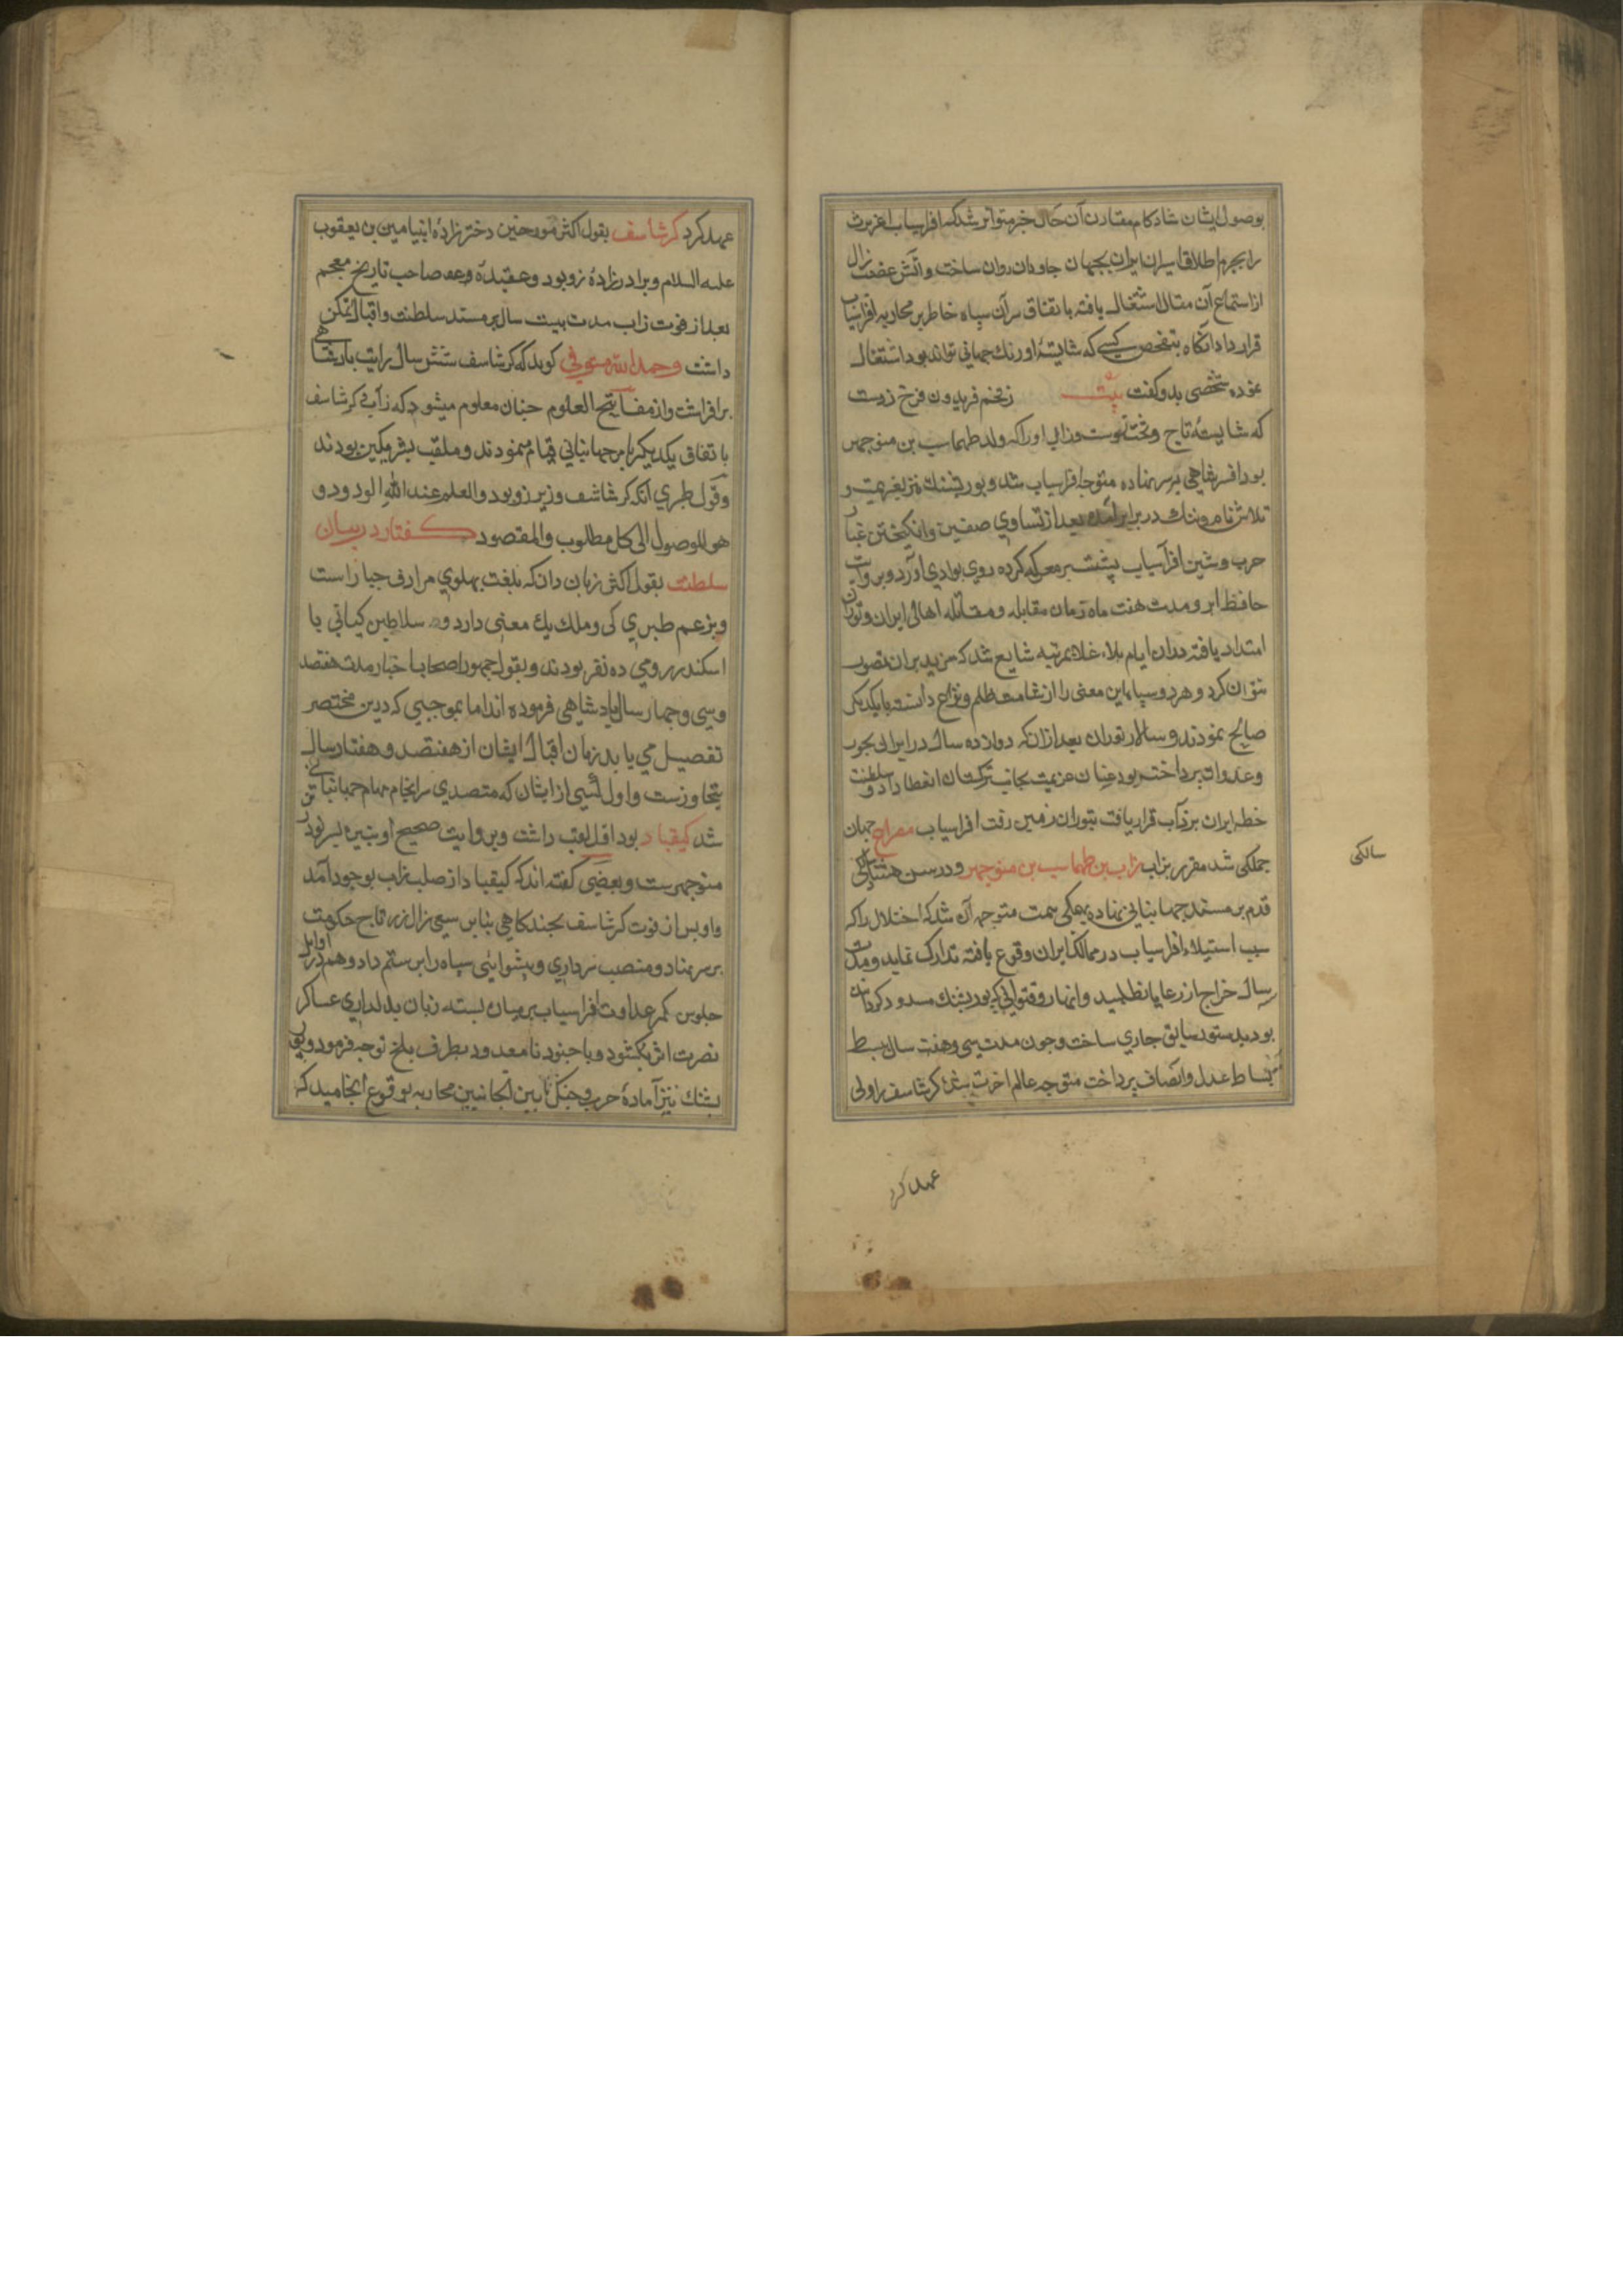 بوصول ایشان شادکام مقارن آن حال خبر متواتر شد که افراسیاب اغریرث
را بجرم اطلاق اسیران ایران بجهان جاودان روان ساخت و آتش غضب زال
از استماع آن مقال اشتغال یافته باتفاق سران سپاه خاطر بر محاربه افراسیاب
قرار داد انکاه بتفحص کسی که شایستهٔ اورنك جهانی تواند بود اشتغال
نموده شخصی بدو کفت بیت ز تخم فریدون فرخ زوست
که شایستهٔ تاج و تخت اوست و زال او را که ولد طهماسب بن منوجهر
بود افسر شاهی بر سر نهاده متوجه افراسیاب شد و پور پشنك نیز بعزیمت
تلاش نام و ننك در برابر آمد بعد از تساوی صفین و انکیختن غبار
حرب و شین افراسیاب پشت بر معرکه کرده روی بوادی آورد و بروایت
حافظ ابرو مدت هفت ماه زمان مقابله و مقاتله اهالی ایران و توران
امتداد یافته بدان ایام بلاء غلا بمرتبه شایع شد که مزید بران تصور
نتوان کرد و هر دو سپاه این معنی را از شامت ظلم و نزاع دانسته با یکدیکر
صالح نمودند و سالار توران بعد از آن که دوازده سال در ایران بحرب
وعداوت پرداخته بود عنان عزیمت بجانب ترکستان انعطاف داد و سلطنت
خطه ایران بر زاب قرار یافت بتوران زمین رفت افراسیاب مصراع جهان
جملکی شد مقرر بزاب زاب بن طهماسب بن منوجهر و در سن هشتاد سالکی
قدم بر مسند جهانبانی نهاده بهمکی همت متوجه آن شد که اختلال را که
سبب استیلاء افراسیاب در ممالك ایران وقوع یافته تدارك نماید و مدت
سال خراج از رعایا نطلبید و انهار و قنواتی که پور پشنك مسدود کردانیده
بود بدستور سابق جاری ساخت وجون مدت سی وهفت سال ببسط
بساط عدل وانصاف پرداخت متوجه عالم اخرت شد کرشاسف را ولی
سالکی
عهد کرد
عهد کرد کرشاسف بقول اکثر مورخین دختر زادهٔ ابنیامین بن یعقوب
علیه السلام و برادر زادهٔ زو بود و عقیدهٔ صاحب تاریخ معجم
بعد از فوت زاب مدت بیست سال بر مسند سلطنت و اقبال تمکن
داشت و حمد الله مستوفی کوید که کرشاسف شش سال رایت پادشاهی
برافراشت و از مفاتیح العلوم جنان معلوم میشود که زاب و کرشاسف
باتفاق یکدیکر بامر جهانبانی قیام مینمودند و ملقب بشریکین بودند
وقول طبری آنکه کرشاشف وزیر زو بود والعلم عند الله الودود و
هو للوصول الی کل مطلوب والمقصود کفتار در بیان
سلطنت بقول اکثر زبان دان که بلغت پهلوی مرادف جبار است
وبزعم طبری کی و ملك یك معنی دارد و سلاطین کیانی با
اسکندر رومی ده نفر بودند و بقول جمهور اصحاب اخبار مدت هفتصد
وسی وجهار سال پادشاهی فرموده اند اما بموجبی که درین مختصر
تفصیل می یابد زمان اقبال ایشان از هفتصد و هفتاد سال
متجاوزست و اول کسی از ایشان که متصدی سرانجام مهام جهانبانی
شد کیقباد بود اول لقب داشت وبروایت صحیح او نبیره پسر نوذر
منوجهرست وبعضی کفته اند که کیقباد از صلب زاب بوجود آمد
واو پس از فوت کرشاسف بجند کاهی بنا بر سعی زال زر تاج حکومت
بر سر نهاد و منصب سرداری و پیشوائی سپاه را برستم داد و هم در اوایل
جلوس کمر عداوت افراسیاب بر میان بسته زبان بدلداری عساکر
نصرت اثر بکشود وبا جنود نامعدود بطرف بلخ توجه فرمود و پور
پشنك نیز آمادهٔ حرب و جنك بین الجانبین محاربه بوقوع انجامید که